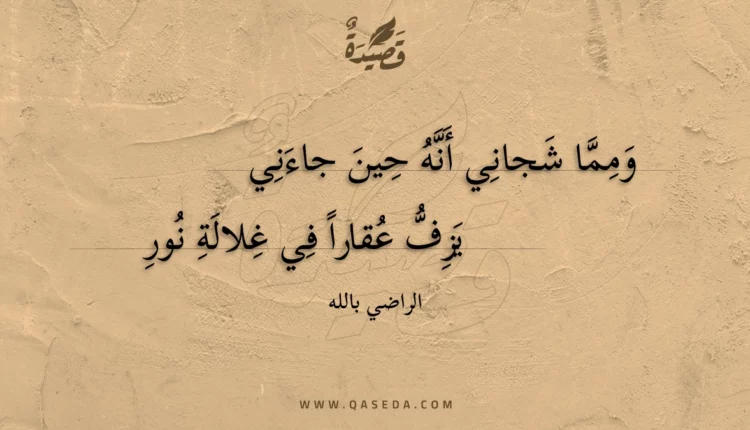 قَصِيدَةٌ
وَمِمَّا شَجانِي أَنَّهُ حِينَ جاءَنِي
يَزِفُّ عُقاراً فِي غِلالَةِ نُورِ
الراضي بالله
WWW.QASEDA.COM